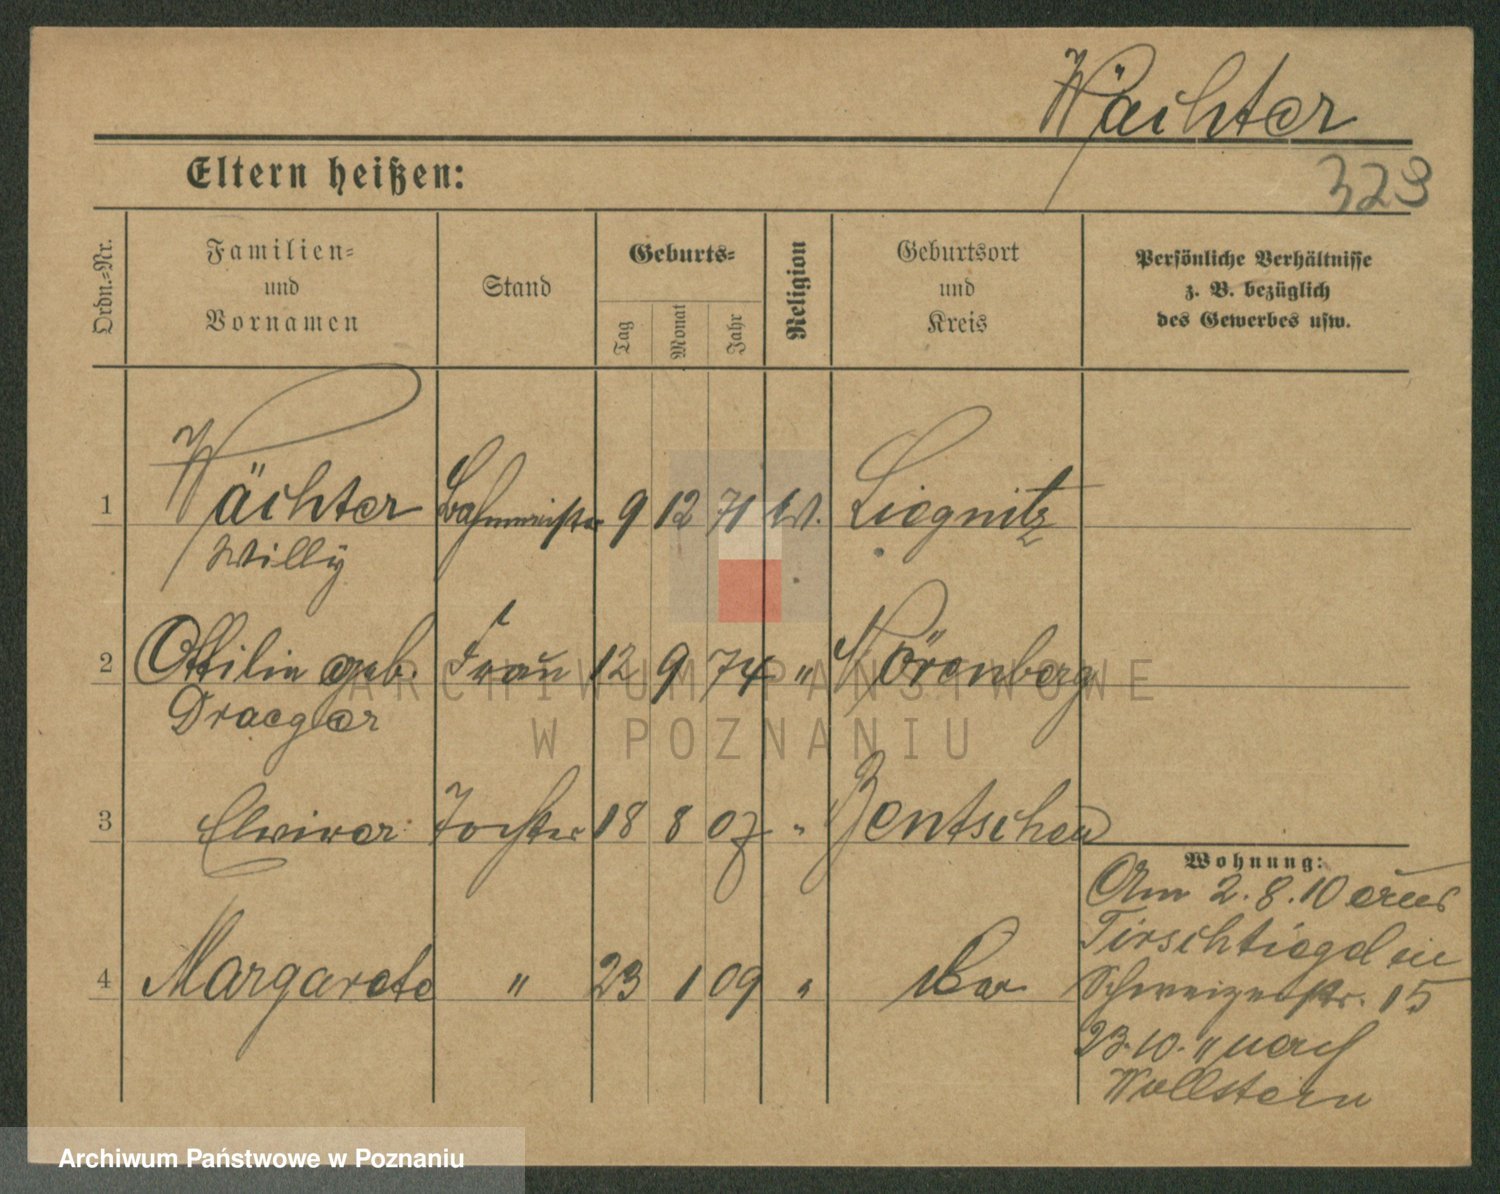 Wächter
323
Eltern heißen:
Ordn.-Nr.
Familien-
und
Vornamen
Stand
Geburts-
Tag
Monat
Jahr
Religion
Geburtsort
und
Kreis
Persönliche Verhältnisse
z. B. bezüglich
des Gewerbes usw.
1 Wächter Bahnmeister 9 12 71 Liegnitz
Willy
2 Ottilie geb. Frau 12 9 74 " Nörenberg
Draeger
3 Tochter 18 8 07 " Bentschen
4 Margarete " 23 1 09 "
Wohnung:
Am 2.8.10 aus
Tirschtiegel in
Schweizerstr. 15
23.10. " nach
Wollstein
ARCHIWUM PAŃSTWOWE
W POZNANIU
Archiwum Państwowe w Poznaniu